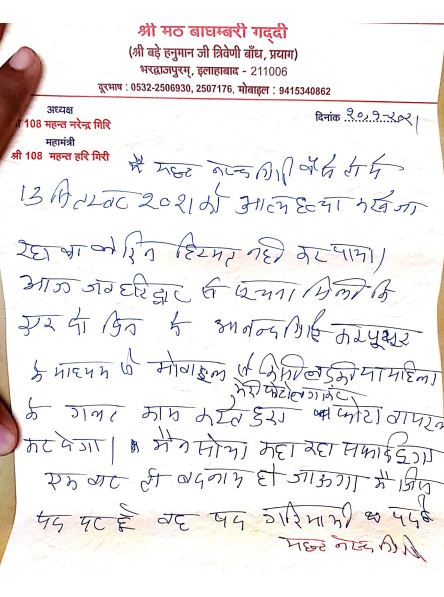 श्री मठ बाघम्बरी गद्दी
(श्री बड़े हनुमान जी त्रिवेणी बाँध, प्रयाग)
भरद्वाजपुरम्, इलाहाबाद - 211006
दूरभाष : 0532-2506930, 2507176, मोबाइल : 9415340862
अध्यक्ष
108 महन्त नरेन्द्र गिरि
महामंत्री
श्री 108 महन्त हरि गिरी
दिनांक
मै महन्त नरेन्द्र गिरी वैसे तो मै
13 सितम्बर 2021 को आत्महत्या करने जा
रहा था लेकिन हिम्मत नही कर पाया।
आज जब हरिद्वार से सूचना मिली कि
एक दो दिन मे आनन्द गिरि कम्प्यूटर
के माध्यम से मोबाइल से किसी लड़की या महिला
मेरी फोटो लगाकर
के गलत काम करते हुए फोटो वायरल
कर देगा। मैने सोचा कहा कहा सफाई दूंगा
एक बार तो बदनाम हो जाऊंगा मै जिस
पद पर हूं वह पद गरिमामयी पद है
महन्त नरेन्द्र गिरी